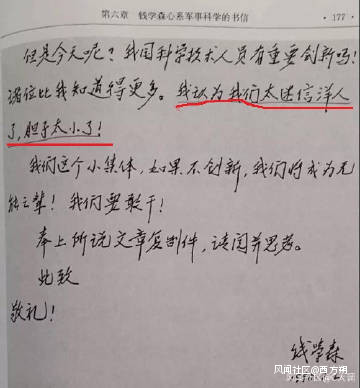 第六章 钱学森心系军事科学的书信 · 177 ·
但是今天呢？我国科学技术人员有重要创新吗！
诸位比我知道得更多。我认为我们太迷信洋人
了，胆子太小了！
我们这个小集体，如果不创新，我们将成为无
能之辈！我们要敢干！
奉上所说文章复制件，请阅并思考。
此致
敬礼！
钱学森
风闻社区@西方朔